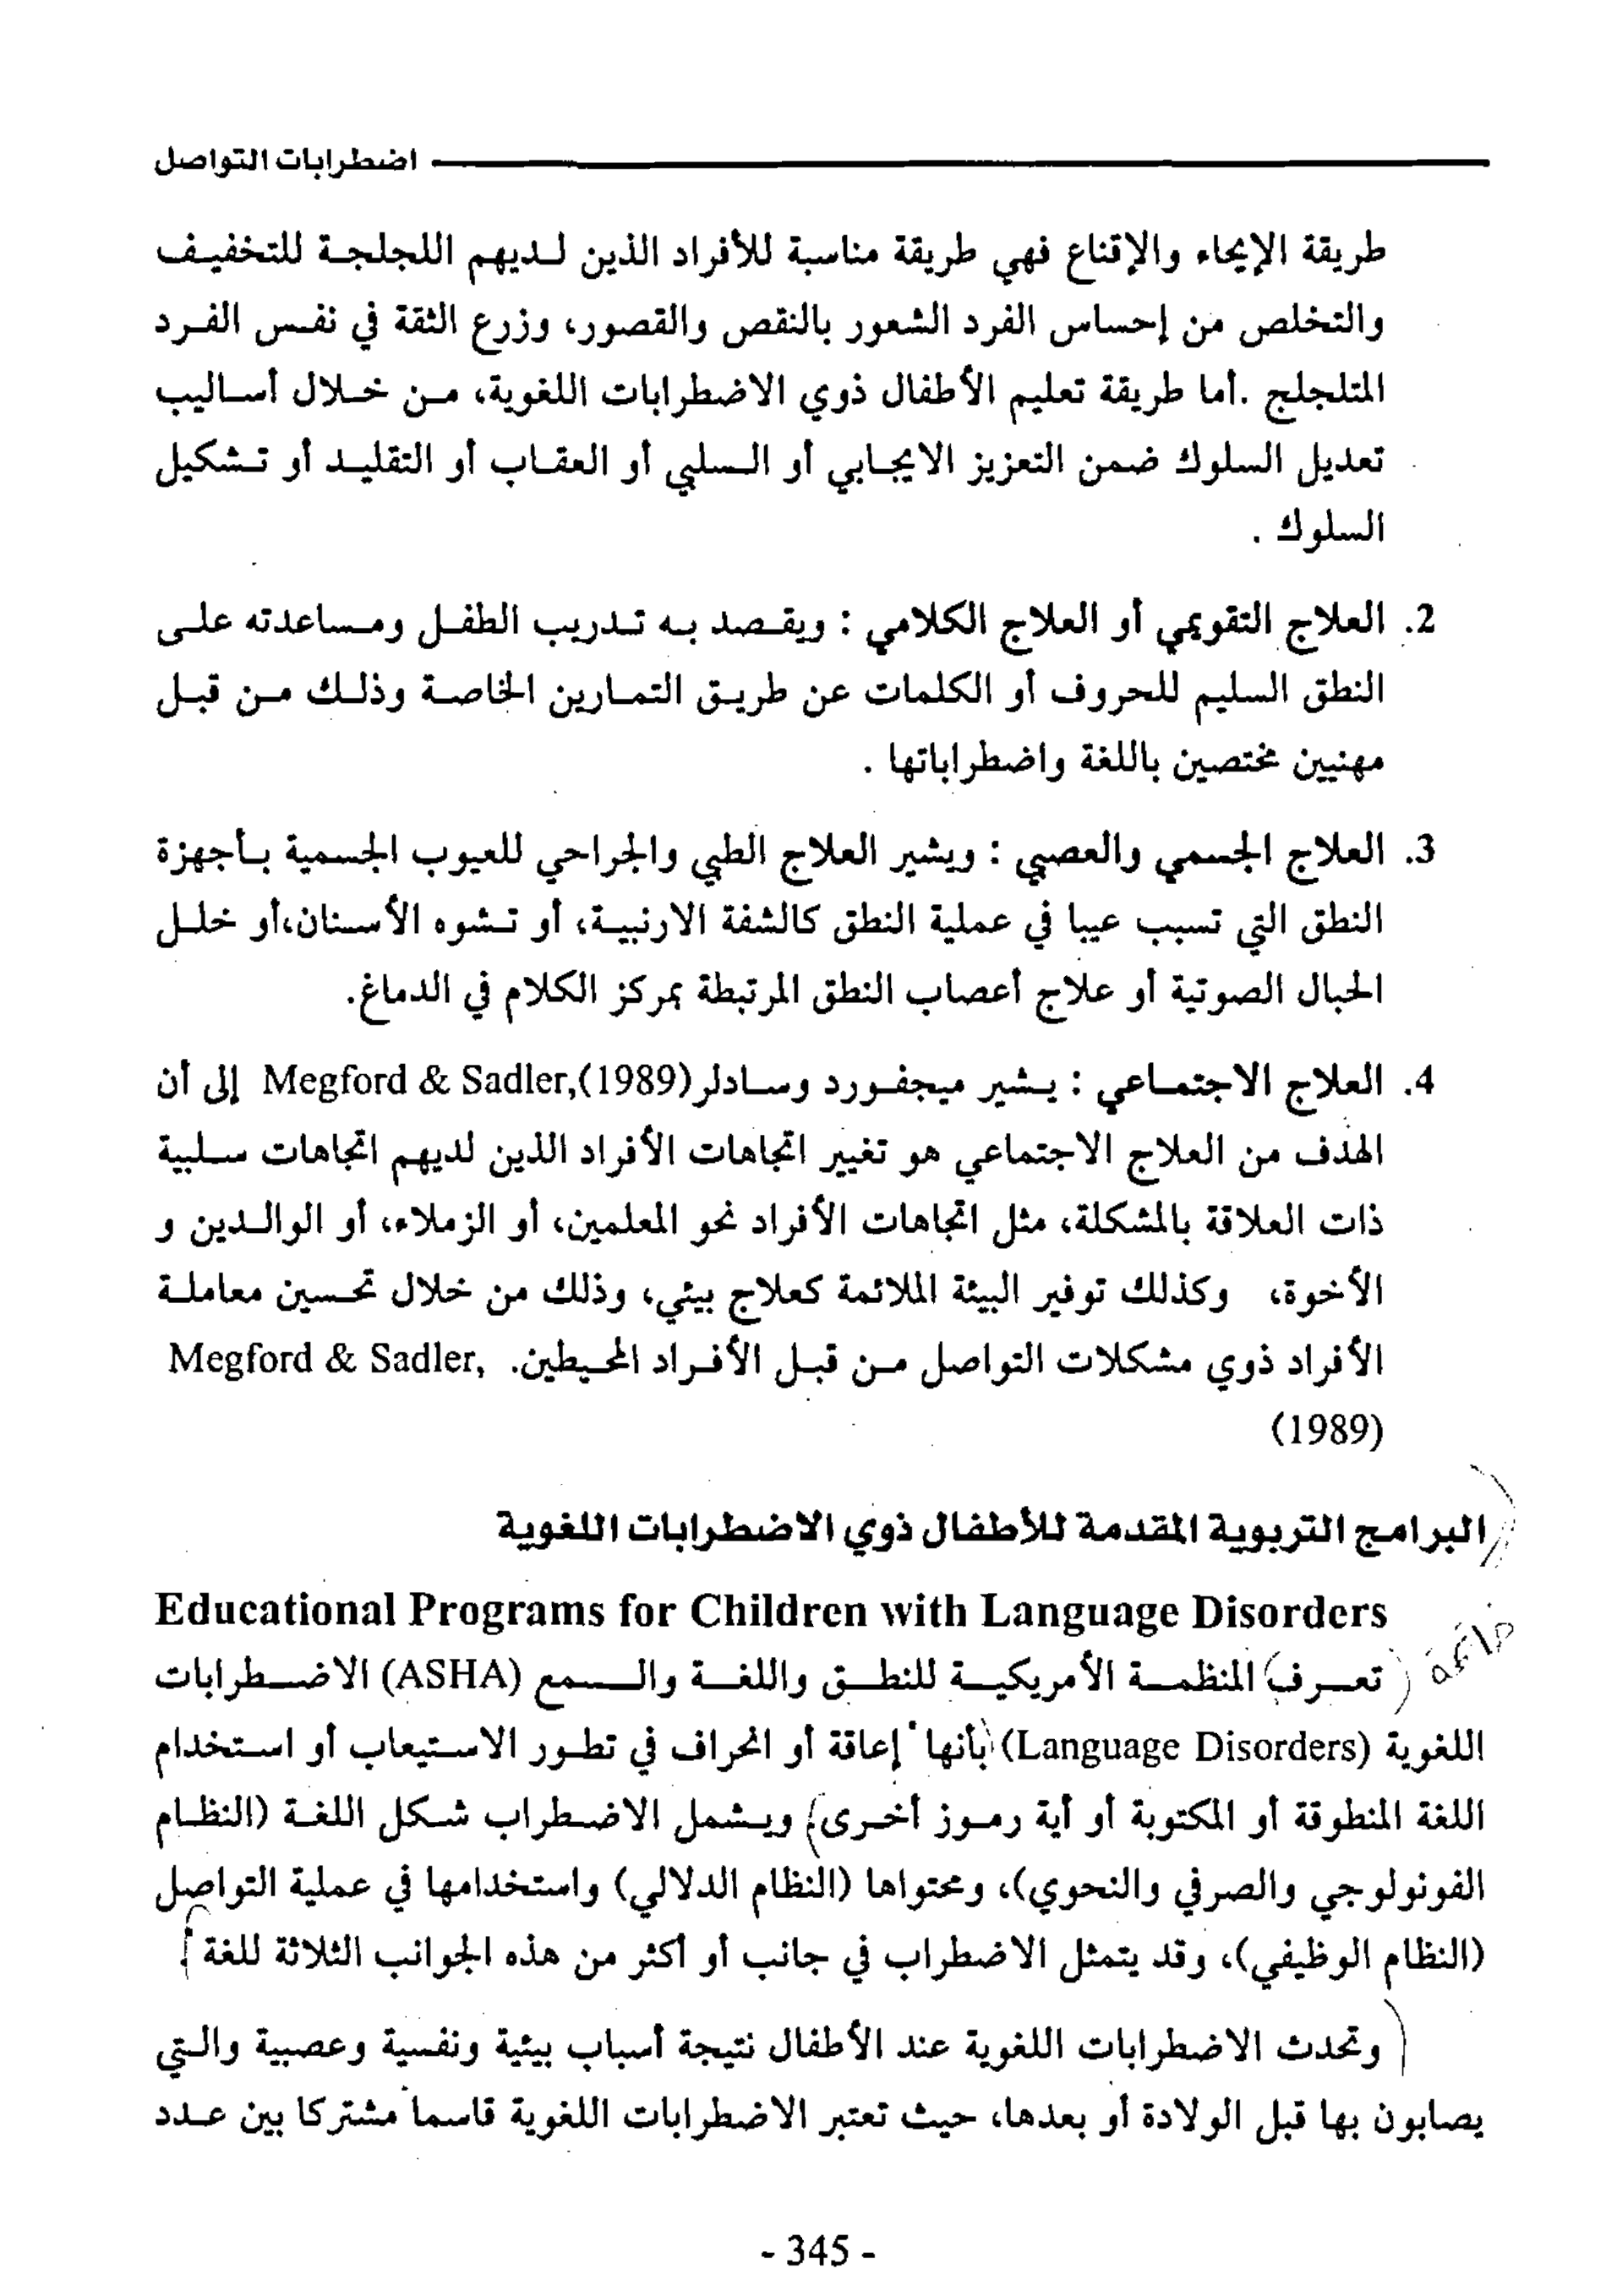 اضطرابات التواصل
طريقة الإيحاء والإقناع فهي طريقة مناسبة للأفراد الذين لديهم اللجلجة للتخفيف
والتخلص من إحساس الفرد الشعور بالنقص والقصور، وزرع الثقة في نفس الفرد
المتلجلج .أما طريقة تعليم الأطفال ذوي الاضطرابات اللغوية، من خلال أساليب
تعديل السلوك ضمن التعزيز الايجابي أو السلبي أو العقاب أو التقليد أو تشكيل
السلوك .
2. العلاج التقويمي أو العلاج الكلامي : ويقصد به تدريب الطفل ومساعدته على
النطق السليم للحروف أو الكلمات عن طريق التمارين الخاصة وذلك من قبل
مهنيين مختصين باللغة واضطراباتها .
3. العلاج الجسمي والعصبي : ويشير العلاج الطبي والجراحي للعيوب الجسمية بأجهزة
النطق التي تسبب عيبا في عملية النطق كالشفة الارنبية، أو تشوه الأسنان،أو خلل
الحبال الصوتية أو علاج أعصاب النطق المرتبطة بمركز الكلام في الدماغ.
4. العلاج الاجتماعي : يشير ميجفورد وسادلر Megford & Sadler,(1989) إلى أن
الهدف من العلاج الاجتماعي هو تغيير اتجاهات الأفراد الذين لديهم اتجاهات سلبية
ذات العلاقة بالمشكلة، مثل اتجاهات الأفراد نحو المعلمين، أو الزملاء، أو الوالدين و
الأخوة، وكذلك توفير البيئة الملائمة كعلاج بيئي، وذلك من خلال تحسين معاملة
الأفراد ذوي مشكلات التواصل من قبل الأفراد المحيطين. Megford & Sadler,
(1989)
البرامج التربوية المقدمة للأطفال ذوي الاضطرابات اللغوية
Educational Programs for Children with Language Disorders
تعرف المنظمة الأمريكية للنطق واللغة والسمع (ASHA) الاضطرابات
اللغوية (Language Disorders) بأنها إعاقة أو انحراف في تطور الاستيعاب أو استخدام
اللغة المنطوقة أو المكتوبة أو أية رموز أخرى) ويشمل الاضطراب شكل اللغة (النظام
الفونولوجي والصرفي والنحوي)، ومحتواها (النظام الدلالي) واستخدامها في عملية التواصل
(النظام الوظيفي)، وقد يتمثل الاضطراب في جانب أو أكثر من هذه الجوانب الثلاثة للغة .
وتحدث الاضطرابات اللغوية عند الأطفال نتيجة أسباب بيئية ونفسية وعصبية والتي
يصابون بها قبل الولادة أو بعدها، حيث تعتبر الاضطرابات اللغوية قاسما مشتركا بين عدد
- 345 -